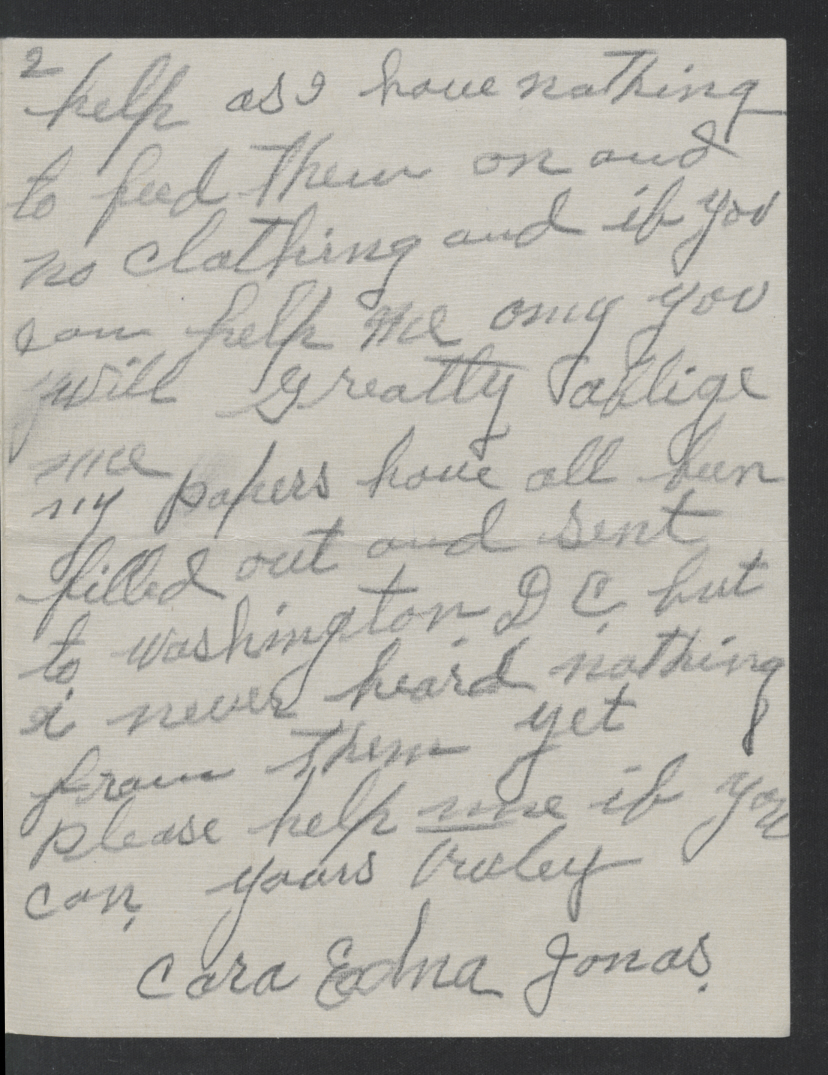 2
help as I have nothing
to feed them on and
no clothing and if you
can help me omy you
will Greatly oblige
me
my papers have all ben
filled out and sent
to washington D C, but
i never heard nothing
from them yet
please help me if you
can, yours truley
Cora Edna Jonas.